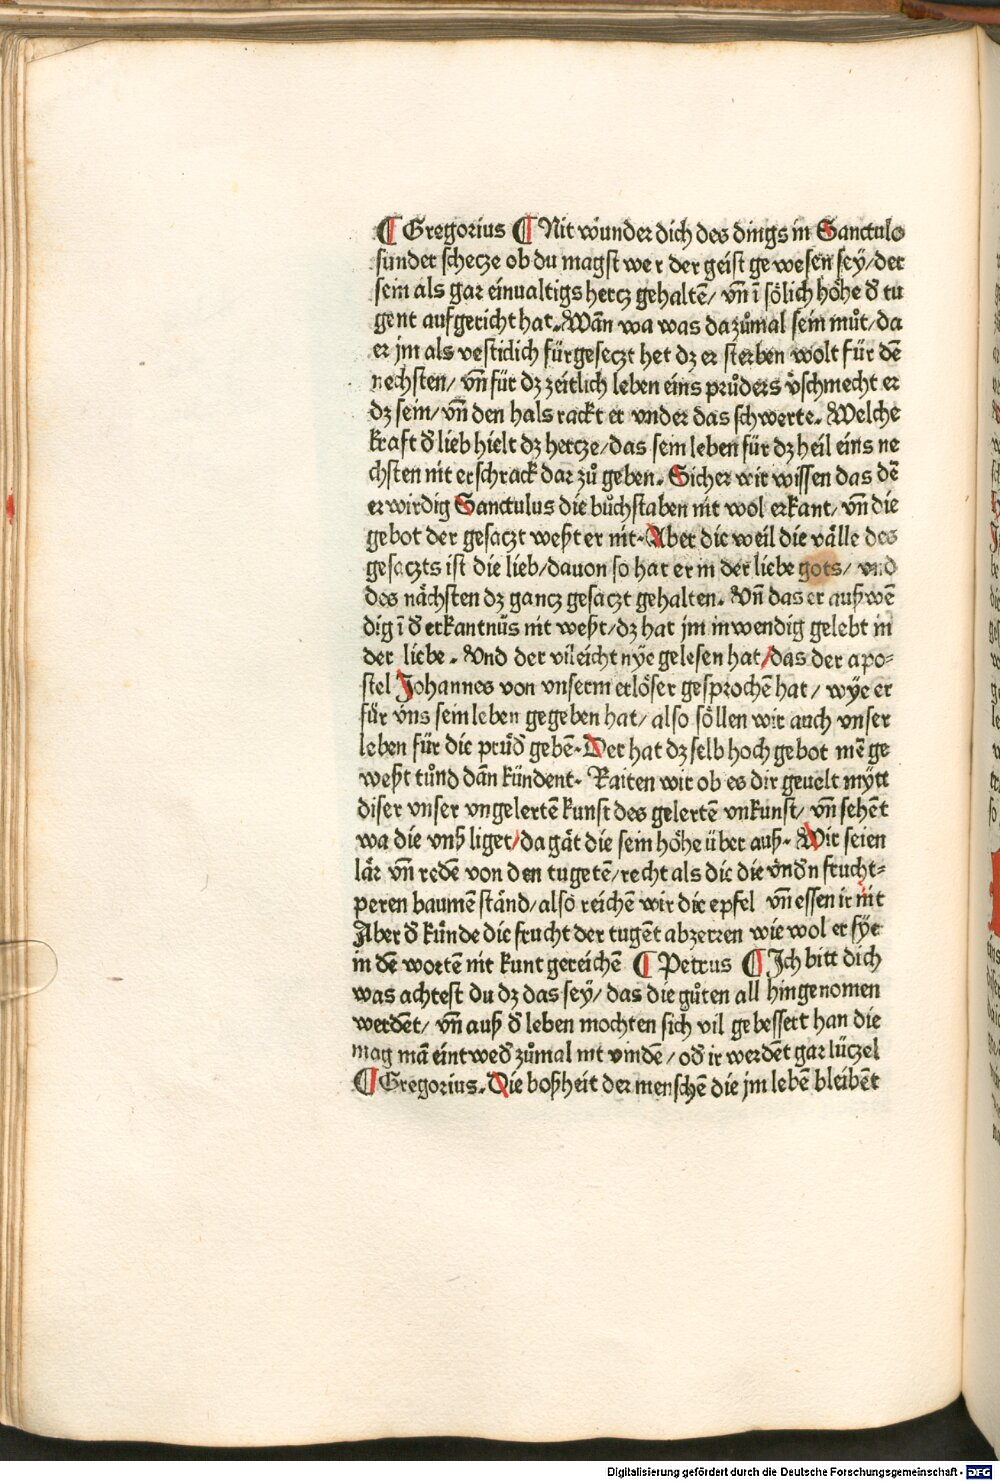 ¶ Gregorius ¶ Nit wunder dich des dings in Sanctulo
sunder schecze ob du magst wer der geist gewesen sey/der
sein als gar einualtigs hertz gehaltē/ vn̄ ī sölich höhe d̄ tu
gent aufgericht hat. Wān wa was dazůmal sein můt/da
er jm als vestidich fürgeseczt het dz er sterben wolt für dē
nechsten/ vn̄ für dz zeitlich leben eins průders v̄schmecht er
dz sein/ vn̄ den hals rackt er vnder das schwerte. Welche
kraft d̄ lieb hielt dz hertze/das sein leben für dz heil eins ne
chsten nit erschrack dar zů geben. Sicher wir wissen das dē
erwirdig Sanctulus die bůchstaben nit wol erkant/ vn̄ die
gebot der gesaczt weßt er nit. Aber die weil die välle des
gesaczts ist die lieb/dauon so hat er in der liebe gots/ vnd
des nächsten dz gancz gesaczt gehalten. Vn̄ das er außwē
dig ī d̄ erkantnüs nit weßt/dz hat jm inwendig gelebt in
der liebe. Vnd der vileicht nye gelesen hat/das der apo-
stel Johannes von vnserm erlöser gesprochē hat/ wye er
für vns sein leben gegeben hat/ also söllen wir auch vnser
leben für die prüd̄ gebē. Der hat dz selb hoch gebot mē ge
weßt tůnd dān kündent. Raiten wir ob es dir geuelt mytt
diser vnser vngelertē kunst des gelertē vnkunst/ vn̄ sehēt
wa die vnß liget/da gät die sein höhe über auß. Wir seien
lär vn̄ redē von den tugetē/recht als die die v̄nd̄n frucht-
peren baumē ständ/also reichē wir die epfel vn̄ essen ir nit
Aber d̄ künde die frucht der tugēt abzerren wie wol er sye
in dē wortē nit kunt gereichē ¶ Petrus ¶ Ich bitt dich
was achtest du dz das sey/ das die gůten all hingenomen
werdēt/ vn̄ auß d̄ leben mochten sich vil gebessert han die
mag mā eintwed̄ zůmal nit vindē/ od̄ ir werdēt gar lüczel
¶ Gregorius. Die boßheit der menschē die jm lebē bleibēt
Digitalisierung gefördert durch die Deutsche Forschungsgemeinschaft - DFG